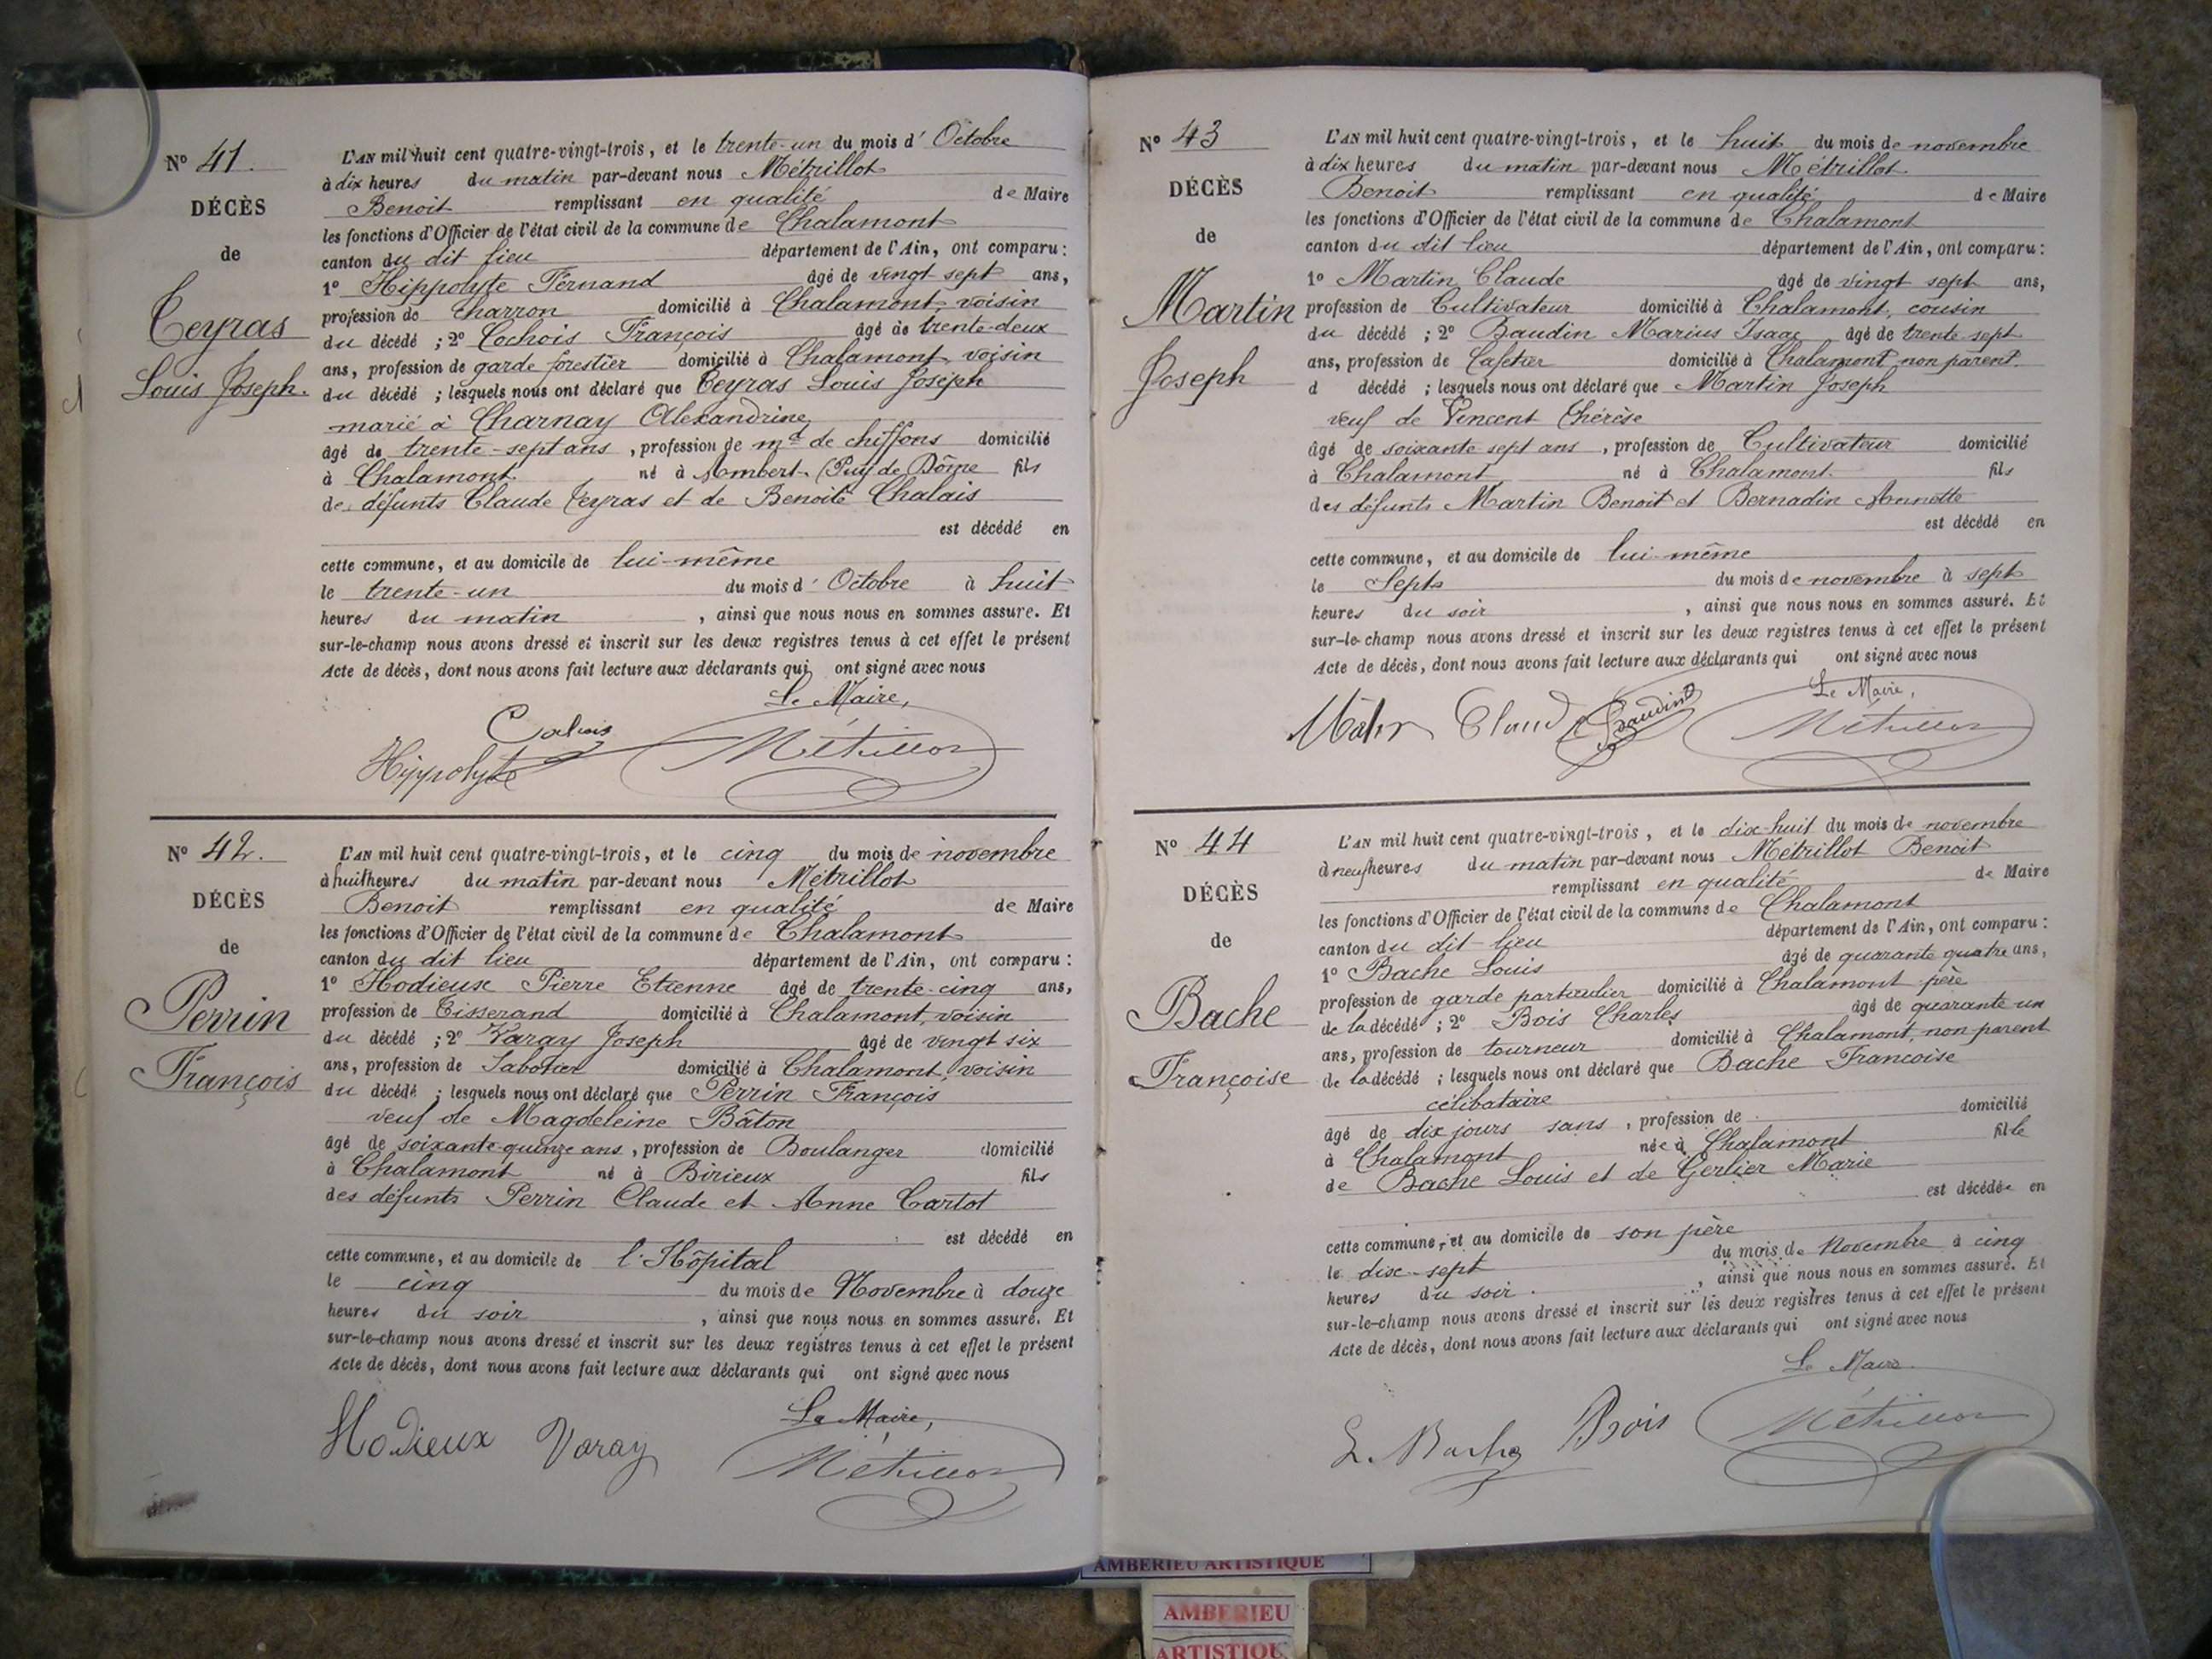 N° 41.
DÉCÈS
de
Teyras
Louis Joseph.
L'AN mil huit cent quatre-vingt-trois, et le trente-un du mois d'Octobre
à dix heures du matin par-devant nous Métrillot
Benoit remplissant en qualité de Maire
les fonctions d'Officier de l'état civil de la commune de Chalamont
canton du dit lieu département de l'Ain, ont comparu :
1° Hippolyte Fernand âgé de vingt sept ans,
profession de Charron domicilié à Chalamont, voisin
du décédé ; 2° Cochois François âgé de trente-deux
ans, profession de garde forestier domicilié à Chalamont, voisin
du décédé ; lesquels nous ont déclaré que Teyras Louis Joseph
marié à Charnay Alexandrine
âgé de trente-sept ans, profession de md de chiffons domicilié
à Chalamont né à Ambert. (Puy de Dôme fils
de défunts Claude Teyras et de Benoite Chalais
est décédé en
cette commune, et au domicile de lui-même
le trente-un du mois d'Octobre à huit
heures du matin, ainsi que nous nous en sommes assuré. Et
sur-le-champ nous avons dressé et inscrit sur les deux registres tenus à cet effet le présent
Acte de décès, dont nous avons fait lecture aux déclarants qui ont signé avec nous
Le Maire,
Hippolyte Métrillot
N° 42.
DÉCÈS
de
Perrin
François
L'AN mil huit cent quatre-vingt-trois, et le cinq du mois de novembre
à huit heures du matin par-devant nous Métrillot
Benoit remplissant en qualité de Maire
les fonctions d'Officier de l'état civil de la commune de Chalamont
canton du dit lieu département de l'Ain, ont comparu :
1° Hodieuse Pierre Etienne âgé de trente-cinq ans,
profession de Tisserand domicilié à Chalamont, voisin
du décédé ; 2° Varay Joseph âgé de vingt six
ans, profession de Sabotier domicilié à Chalamont, voisin
du décédé ; lesquels nous ont déclaré que Perrin François
veuf de Magdeleine Bâton
âgé de soixante-quinze ans, profession de Boulanger domicilié
à Chalamont né à Birieux fils
des défunts Perrin Claude et Anne Cartot
est décédé en
cette commune, et au domicile de l'Hôpital
le cinq du mois de Novembre à douze
heures du soir, ainsi que nous nous en sommes assuré. Et
sur-le-champ nous avons dressé et inscrit sur les deux registres tenus à cet effet le présent
Acte de décès, dont nous avons fait lecture aux déclarants qui ont signé avec nous
Le Maire,
Hodieux Varay Métrillot
N° 43
DÉCÈS
de
Martin
Joseph
L'AN mil huit cent quatre-vingt-trois, et le huit du mois de novembre
à dix heures du matin par-devant nous Métrillot
Benoit remplissant en qualité de Maire
les fonctions d'Officier de l'état civil de la commune de Chalamont
canton du dit lieu département de l'Ain, ont comparu :
1° Martin Claude âgé de vingt sept ans,
profession de Cultivateur domicilié à Chalamont, cousin
du décédé ; 2° Baudin Marius Isaac âgé de trente sept
ans, profession de Cafetier domicilié à Chalamont, non parent.
d décédé ; lesquels nous ont déclaré que Martin Joseph
veuf de Vincent Thérèse
âgé de soixante sept ans, profession de Cultivateur domicilié
à Chalamont né à Chalamont. fils
des défunts Martin Benoit et Bernadin Annette
est décédé en
cette commune, et au domicile de lui-même
le Sept du mois de novembre à sept
heures du soir, ainsi que nous nous en sommes assuré. Et
sur-le-champ nous avons dressé et inscrit sur les deux registres tenus à cet effet le présent
Acte de décès, dont nous avons fait lecture aux déclarants qui ont signé avec nous
Le Maire,
Claude Baudin Métrillot
N° 44
DÉCÈS
de
Bache
Françoise
L'AN mil huit cent quatre-vingt-trois, et le dix-huit du mois de novembre
à neuf heures du matin par-devant nous Métrillot Benoit
remplissant en qualité de Maire
les fonctions d'Officier de l'état civil de la commune de Chalamont
canton du dit-lieu département de l'Ain, ont comparu :
1° Bache Louis âgé de quarante quatre ans,
profession de garde particulier domicilié à Chalamont père
de la décédé ; 2° Bois Charles âgé de quarante un
ans, profession de tourneur domicilié à Chalamont, non parent
de la décédé ; lesquels nous ont déclaré que Bache Francoise
célibataire
âgé de dix jours sans, profession de domicilié
à Chalamont née à Chalamont fille
de Bache Louis et de Gerlier Marie
est décédée en
cette commune, et au domicile de son père
le dix-sept du mois de Novembre à cinq
heures du soir, ainsi que nous nous en sommes assuré. Et
sur-le-champ nous avons dressé et inscrit sur les deux registres tenus à cet effet le présent
Acte de décès, dont nous avons fait lecture aux déclarants qui ont signé avec nous
Le Maire.
L. Bache Bois Métrillot
AMBERIEU ARTISTIQUE
AMBERIEU
ARTISTIQU